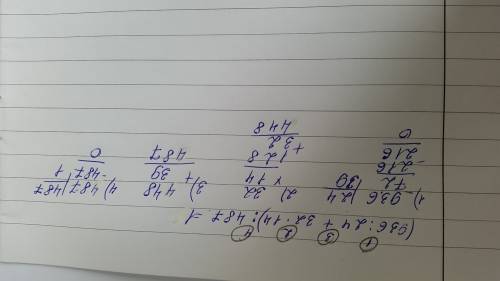 1 3 2 4
(936:24 + 32·14):487 = 1
1) -936 | 24
72 | 39
-216
216
0
2) 32
×
14
128
+
32
448
3) 448
+
39
487
4) 487 | 487
-487 | 1
0